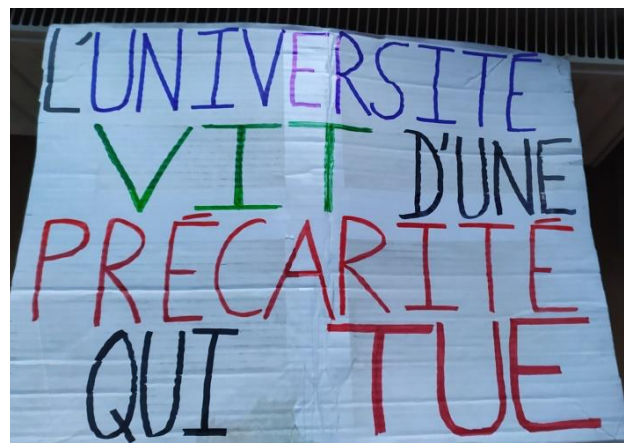 L'UNIVERSITÉ
VIT D'UNE
PRÉCARITÉ
QUI TUE